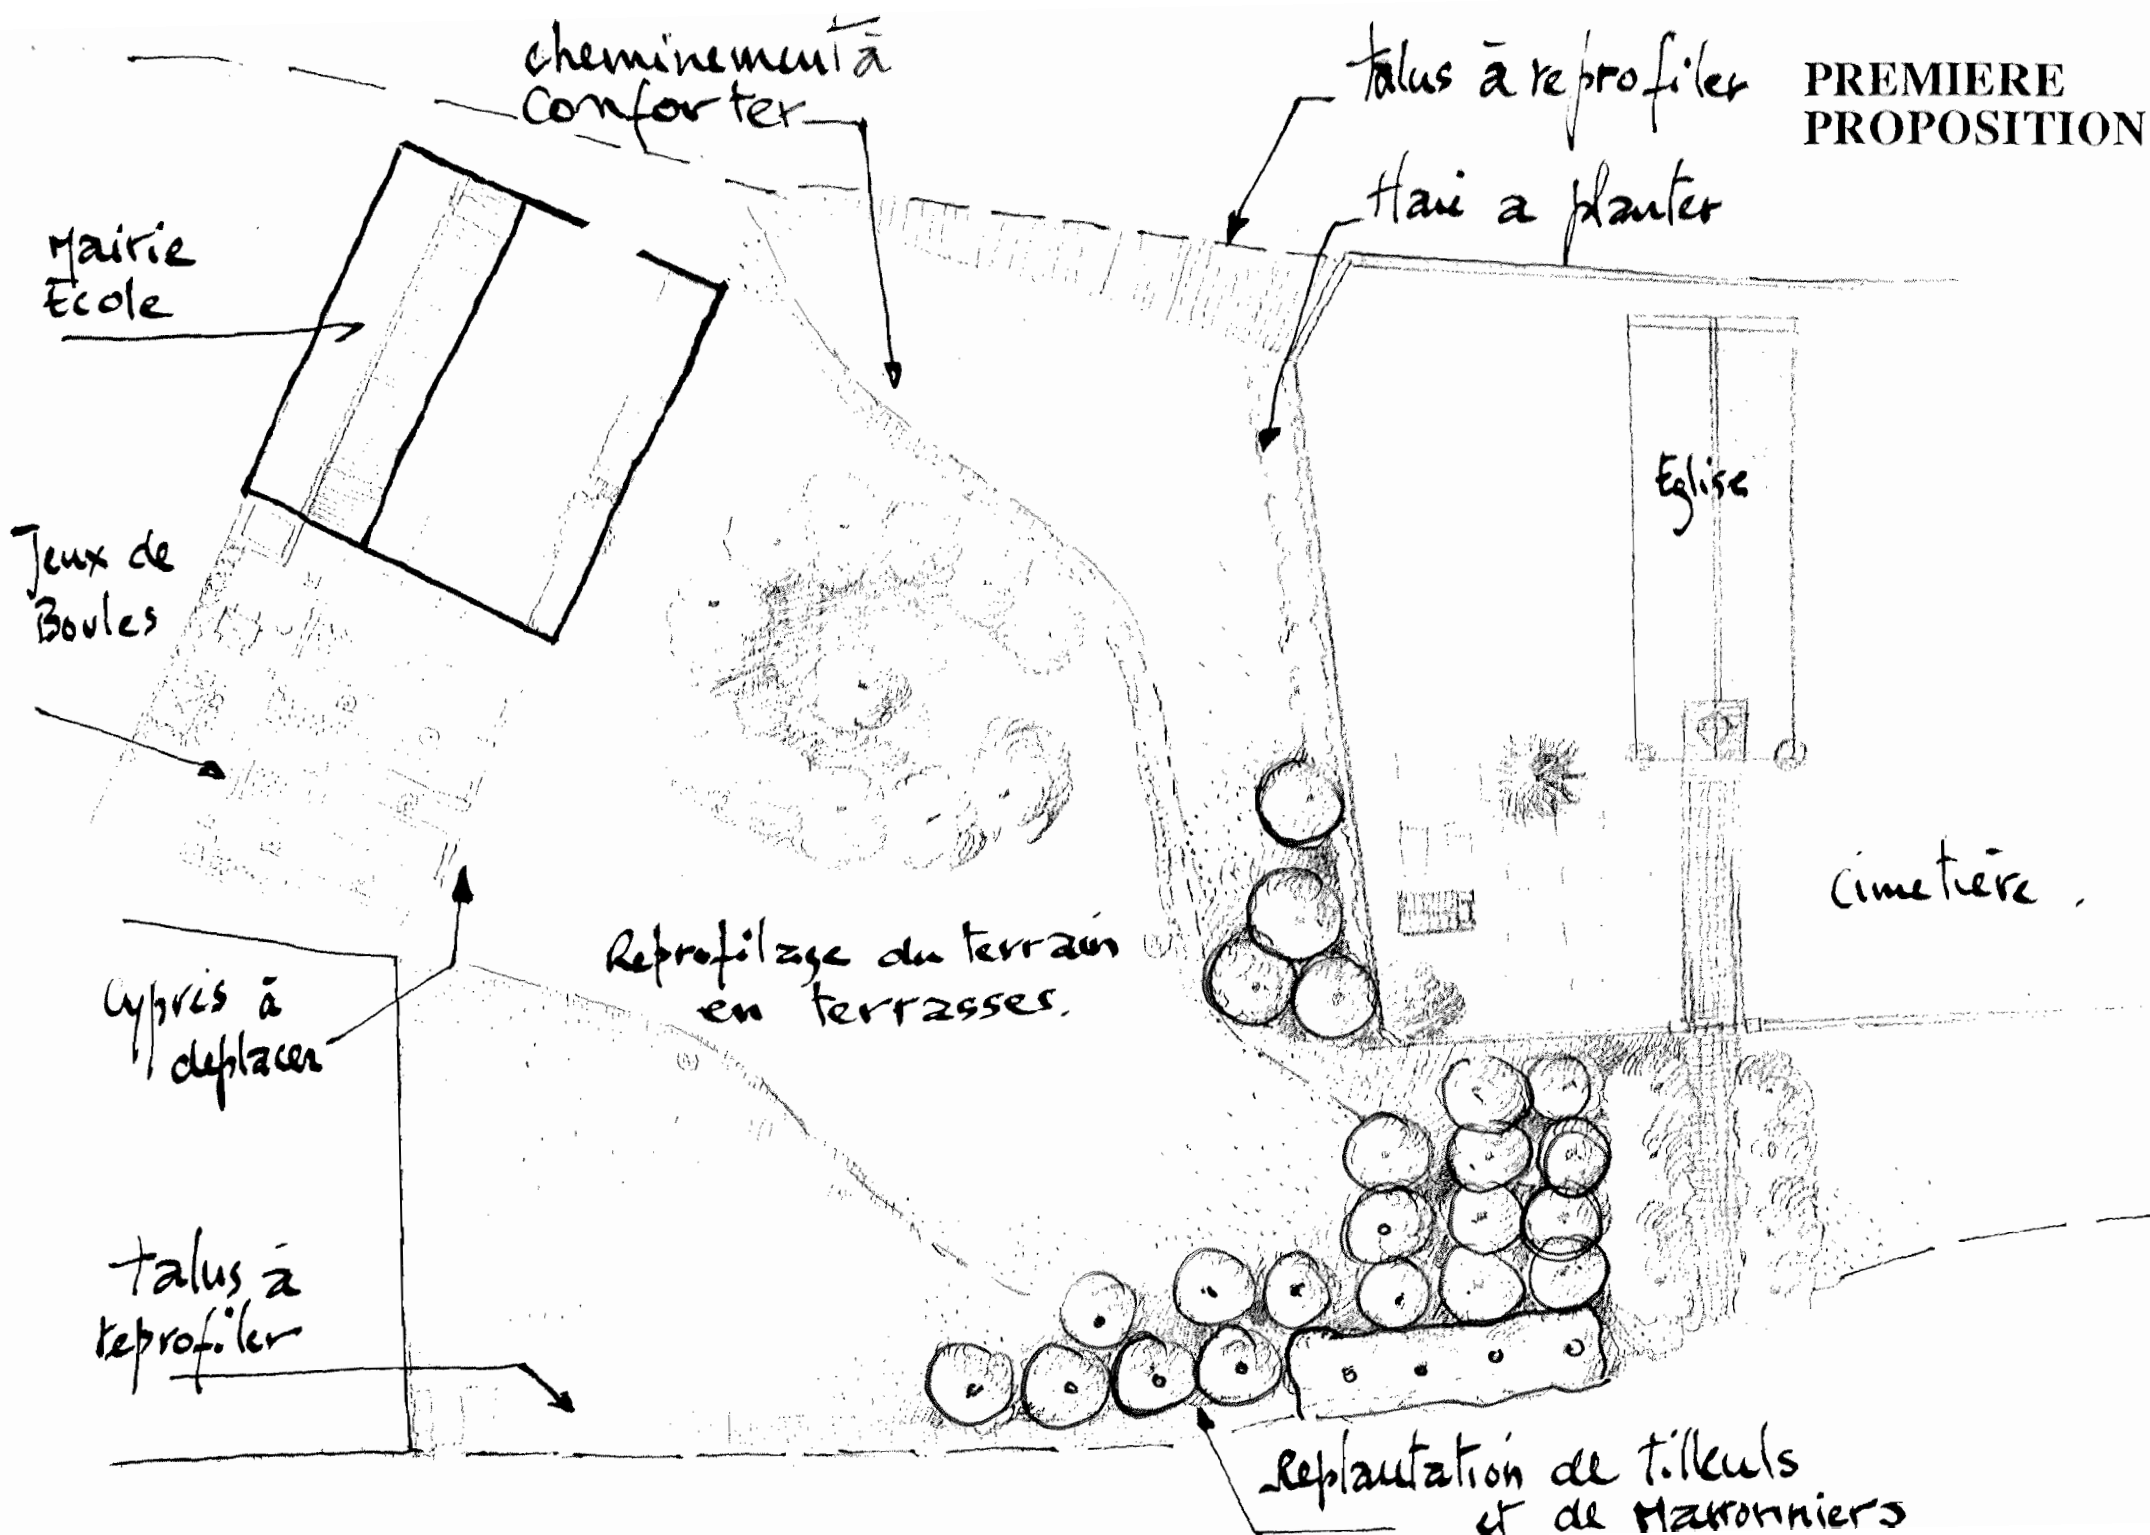 cheminement à
conforter
talus à reprofiler
PREMIERE
PROPOSITION
Haie a planter
Mairie
Ecole
Eglise
Jeux de
Boules
Cimetière.
Reprofilage du terrain
en terrasses.
Cyprès à
deplacer
talus à
reprofiler
Replantation de tilleuls
et de Marronniers